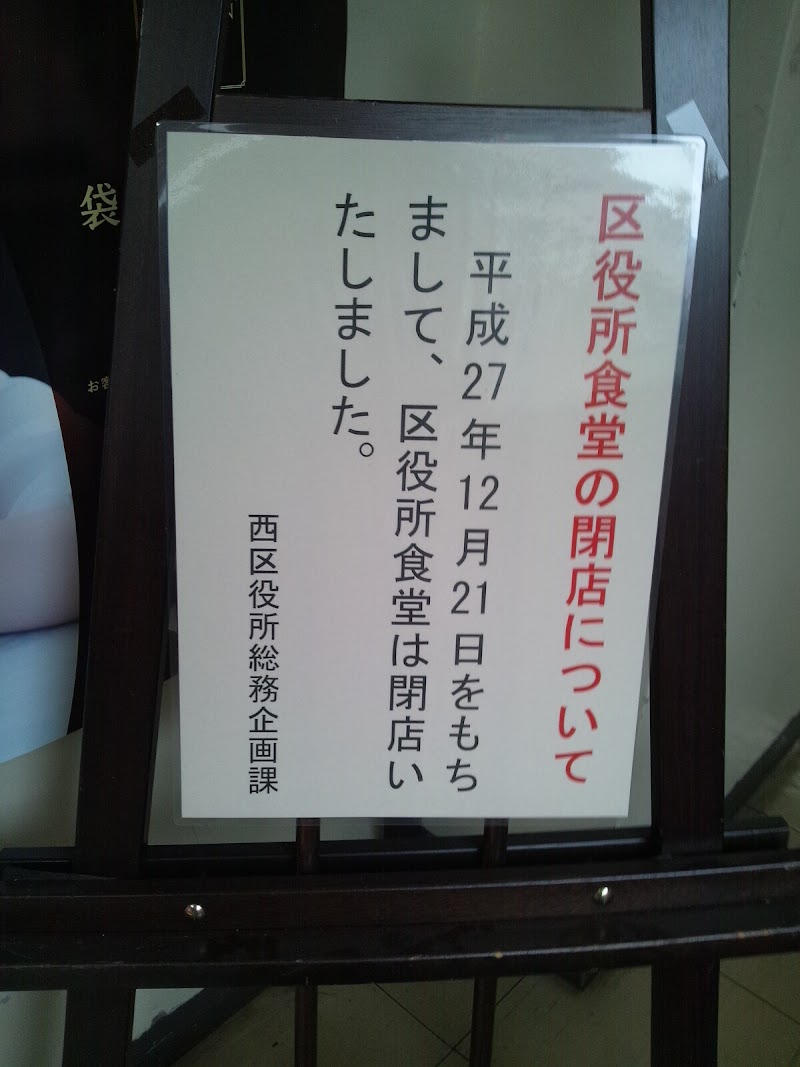 区役所食堂の閉店について
平成27年12月21日をもち
まして、区役所食堂は閉店い
たしました。
西区役所総務企画課
袋
お客